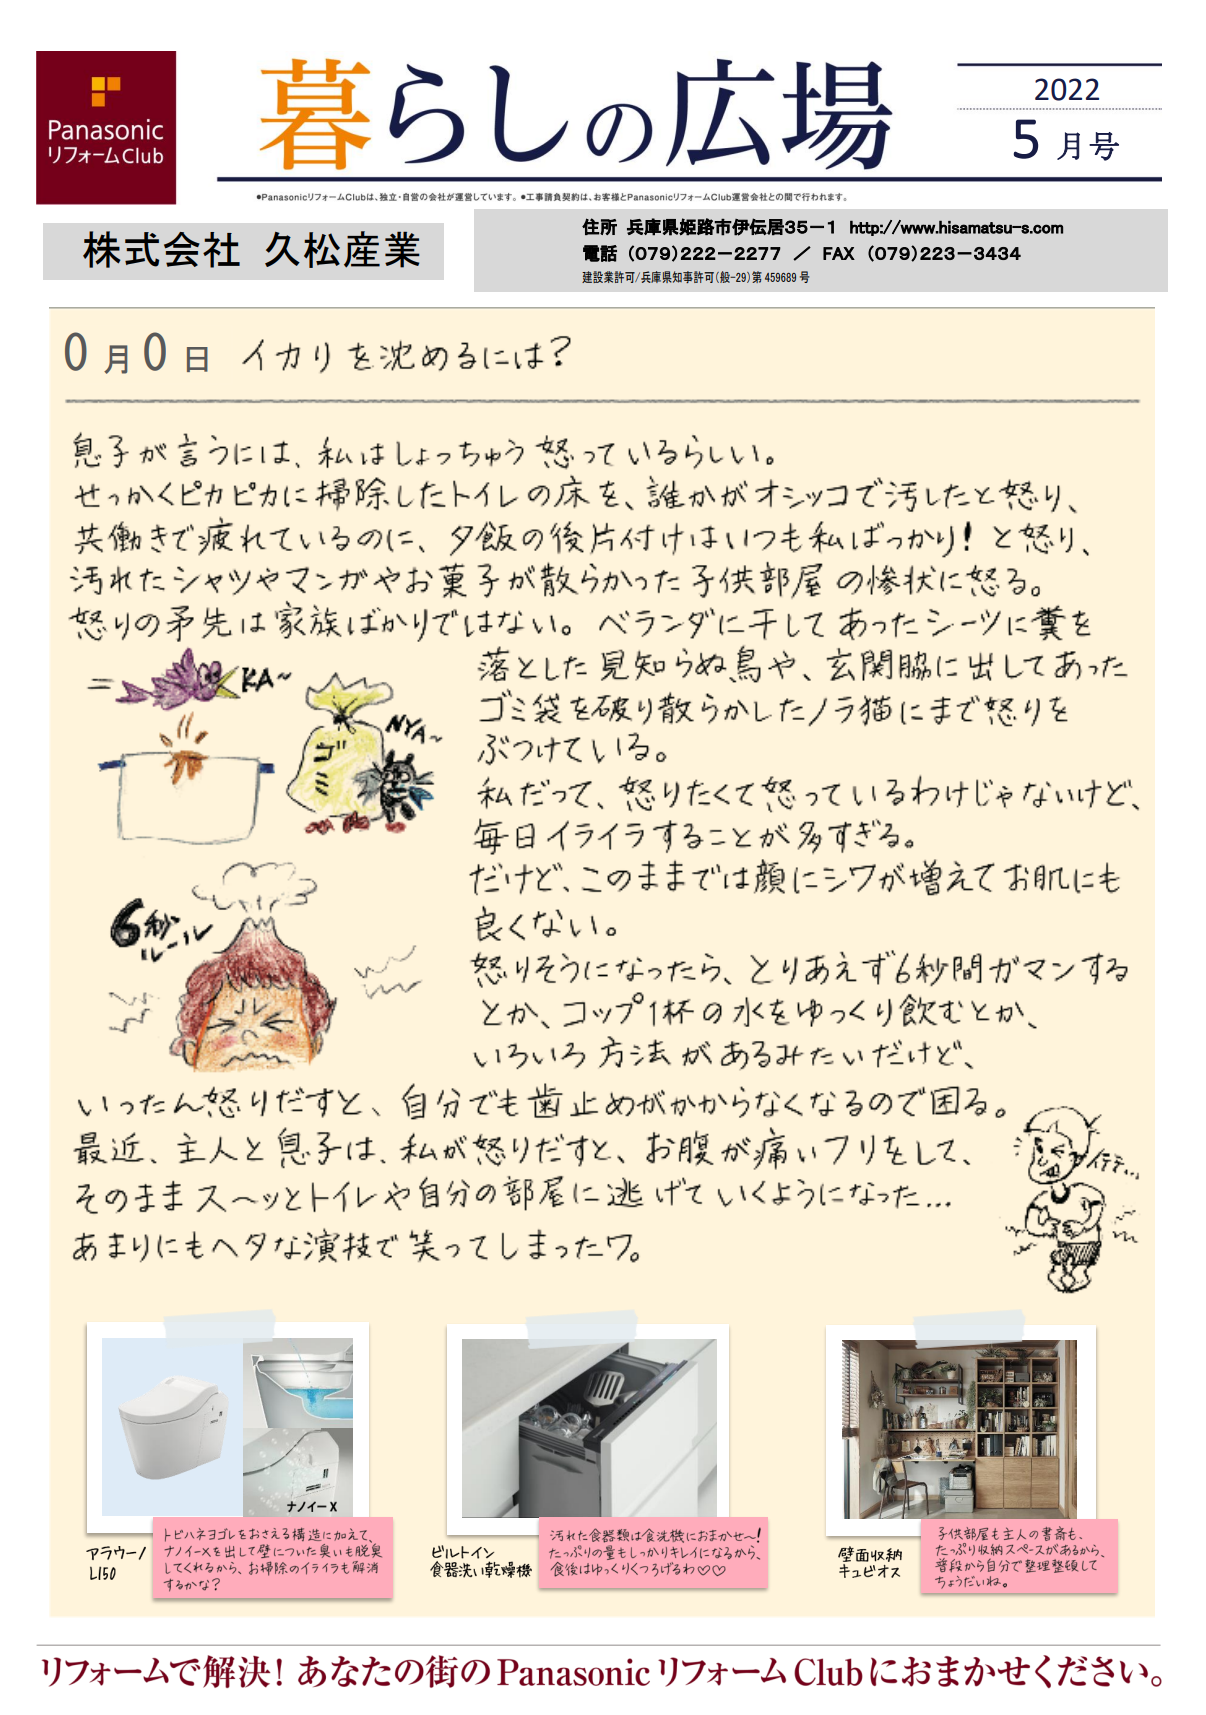 Panasonic
リフォームClub
暮らしの広場
2022
5 月号
●PanasonicリフォームClubは、独立・自営の会社が運営しています。●工事請負契約は、お客様とPanasonicリフォームClub運営会社との間で行われます。
株式会社 久松産業
住所 兵庫県姫路市伊伝居35－1 http://www.hisamatsu-s.com
電話 (079)222－2277 ／ FAX (079)223－3434
建設業許可/兵庫県知事許可(般-29)第 459689 号
0月0日 イカリを沈めるには?
息子が言うには、私はしょっちゅう怒っているらしい。
せっかくピカピカに掃除したトイレの床を、誰かがオシッコで汚したと怒り、
共働きで疲れているのに、夕飯の後片付けはいつも私ばっかり!と怒り、
汚れたシャツやマンガやお菓子が散らかった子供部屋の惨状に怒る。
怒りの矛先は家族ばかりではない。ベランダに干してあったシーツに糞を
落とした見知らぬ鳥や、玄関脇に出してあった
ゴミ袋を破り散らかしたノラ猫にまで怒りを
ぶつけている。
KA〜
NYA〜
ゴミ
私だって、怒りたくて怒っているわけじゃないけど、
毎日イライラすることが多すぎる。
だけど、このままでは顔にシワが増えてお肌にも
良くない。
6秒
ルール
怒りそうになったら、とりあえず6秒間ガマンする
とか、コップ1杯の水をゆっくり飲むとか、
いろいろ方法があるみたいだけど、
いったん怒りだすと、自分でも歯止めがかからなくなるので困る。
最近、主人と息子は、私が怒りだすと、お腹が痛いフリをして、
そのままス〜ッとトイレや自分の部屋に逃げていくようになった…
あまりにもヘタな演技で笑ってしまったワ。
イテテ…
ナノイーX
アラウーノ
L150
トビハネヨゴレをおさえる構造に加えて、
ナノイーXを出して壁についた臭いも脱臭
してくれるから、お掃除のイライラも解消
するかな?
ビルトイン
食器洗い乾燥機
汚れた食器類は食洗機におまかせ〜!
たっぷりの量もしっかりキレイになるから、
食後はゆっくりくつろげるわ♡♡
壁面収納
キュビオス
子供部屋も主人の書斎も、
たっぷり収納スペースがあるから、
普段から自分で整理整頓して
ちょうだいね。
リフォームで解決! あなたの街のPanasonicリフォームClubにおまかせください。